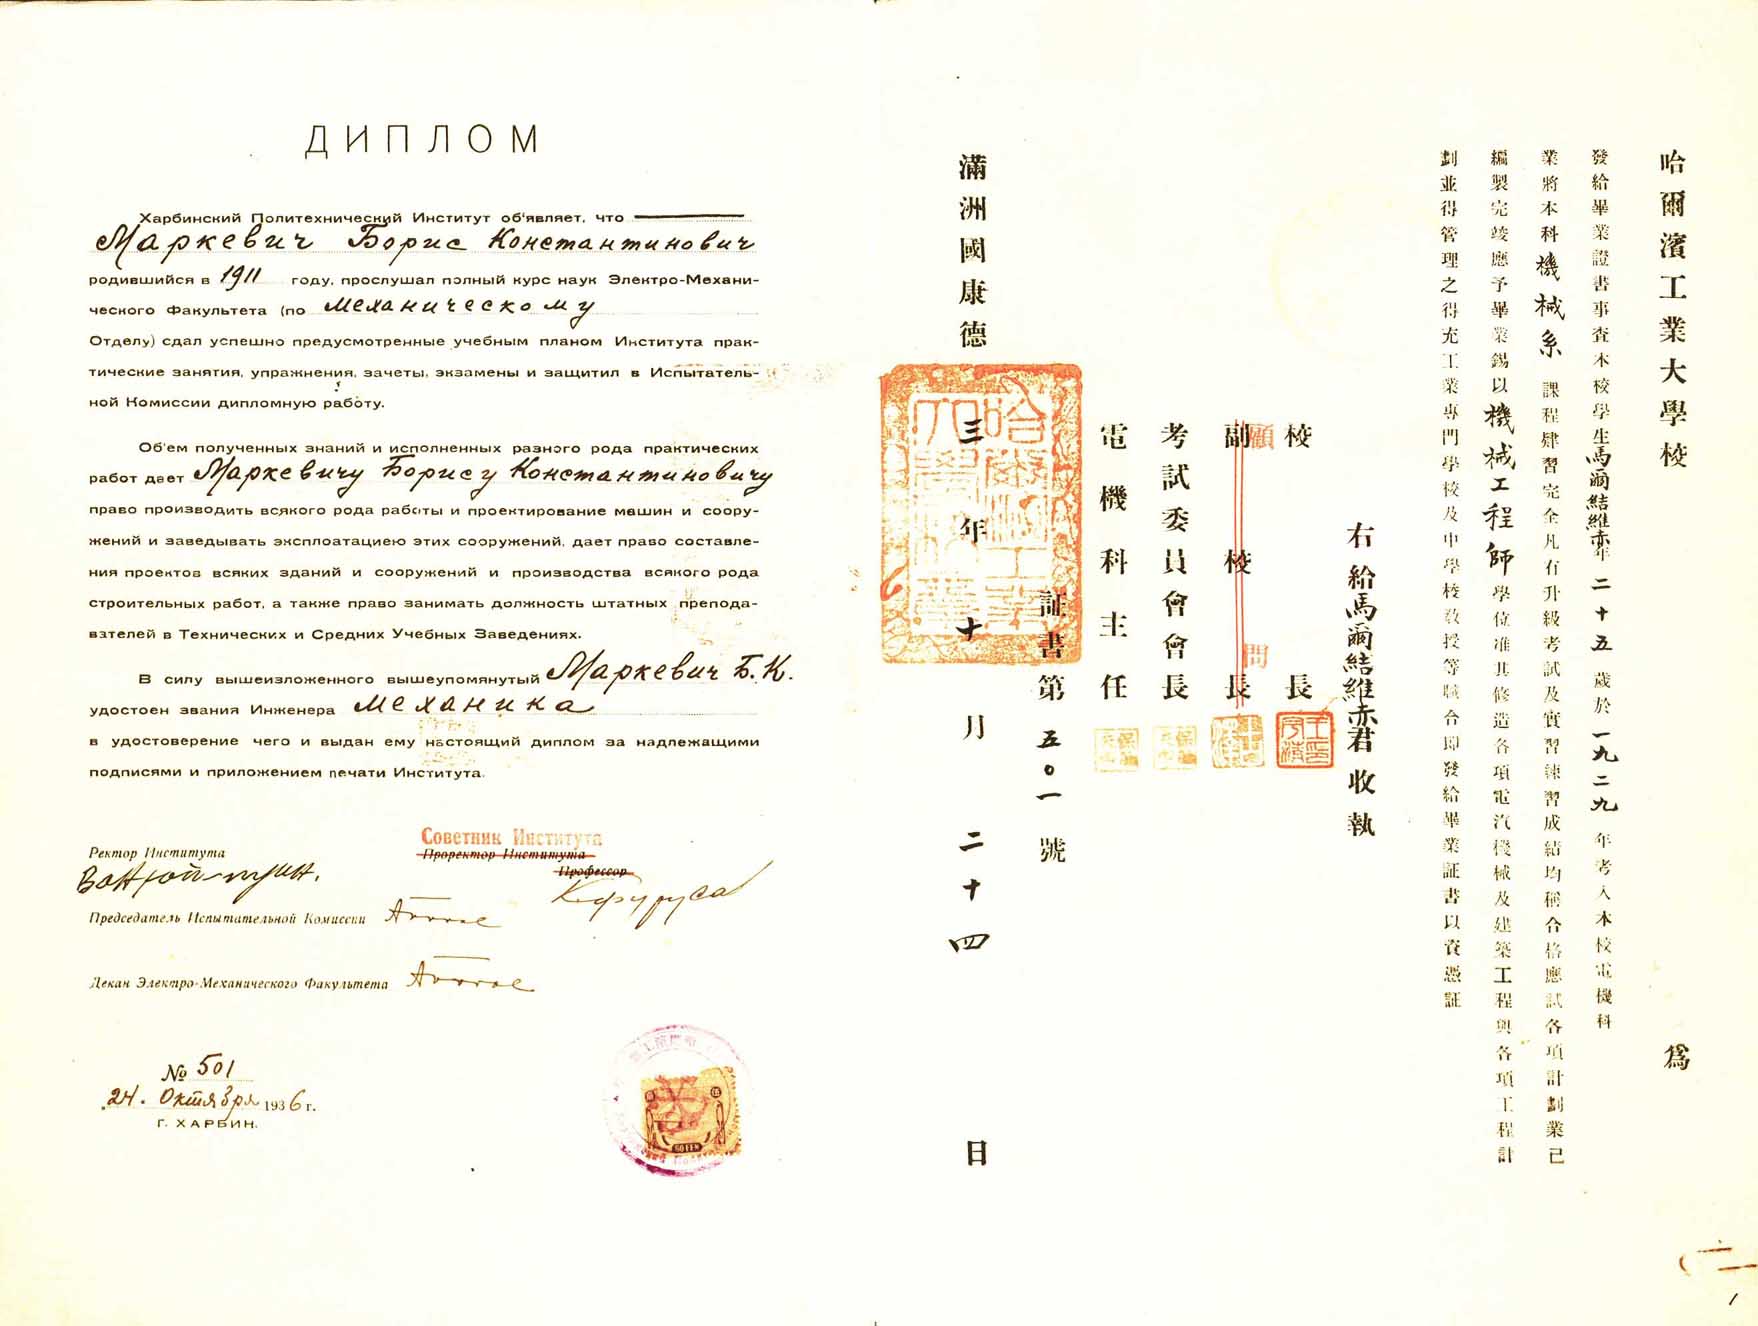 ДИПЛОМ
Харбинский Политехнический Институт об'являет, что
Маркевич Борис Константинович
родившийся в 1911 году, прослушал полный курс наук Электро-Механи-
ческого Факультета (по механическому
Отделу) сдал успешно предусмотренные учебным планом Института прак-
тические занятия, упражнения, зачеты, экзамены и защитил в Испытатель-
ной Комиссии дипломную работу.
Об'ем полученных знаний и исполненных разного рода практических
работ дает Маркевичу Борису Константиновичу
право производить всякого рода работы и проектирование машин и соору-
жений и заведывать эксплоатациею этих сооружений, дает право составле-
ния проектов всяких зданий и сооружений и производства всякого рода
строительных работ, а также право занимать должность штатных препода-
вателей в Технических и Средних Учебных Заведениях.
В силу вышеизложенного вышеупомянутый Маркевич Б.К.
удостоен звания Инженера механика
в удостоверение чего и выдан ему настоящий диплом за надлежащими
подписями и приложением печати Института.
Советник Института
Ректор Института Проректор Института
Профессор
Председатель Испытательной Комиссии
Декан Электро-Механического Факультета
№ 501
24. Октября 1936 г.
Г. ХАРБИН.
哈爾濱工業大學校 爲
發給畢業證書事查本校學生馬爾結維赤年二十五歲於一九二九年考入本校電機科
業將本科機械系課程肄習完全凡有升級考試及實習練習成結均稱合格應試各項計劃業已
編製完竣應予畢業錫以機械工程師學位准其修造各項電汽機械及建築工程與各項工程計
劃並得管理之得充工業專門學校及中學校教授等職合即發給畢業証書以資憑証
右給馬爾結維赤君收執
校長
副校長
顧問
考試委員會會長
電機科主任
証書第五〇一號
滿洲國康德三年十月二十四日